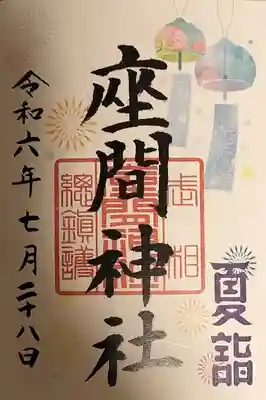 武相
座間神社
總鎮護
夏詣
令和六年七月二十八日